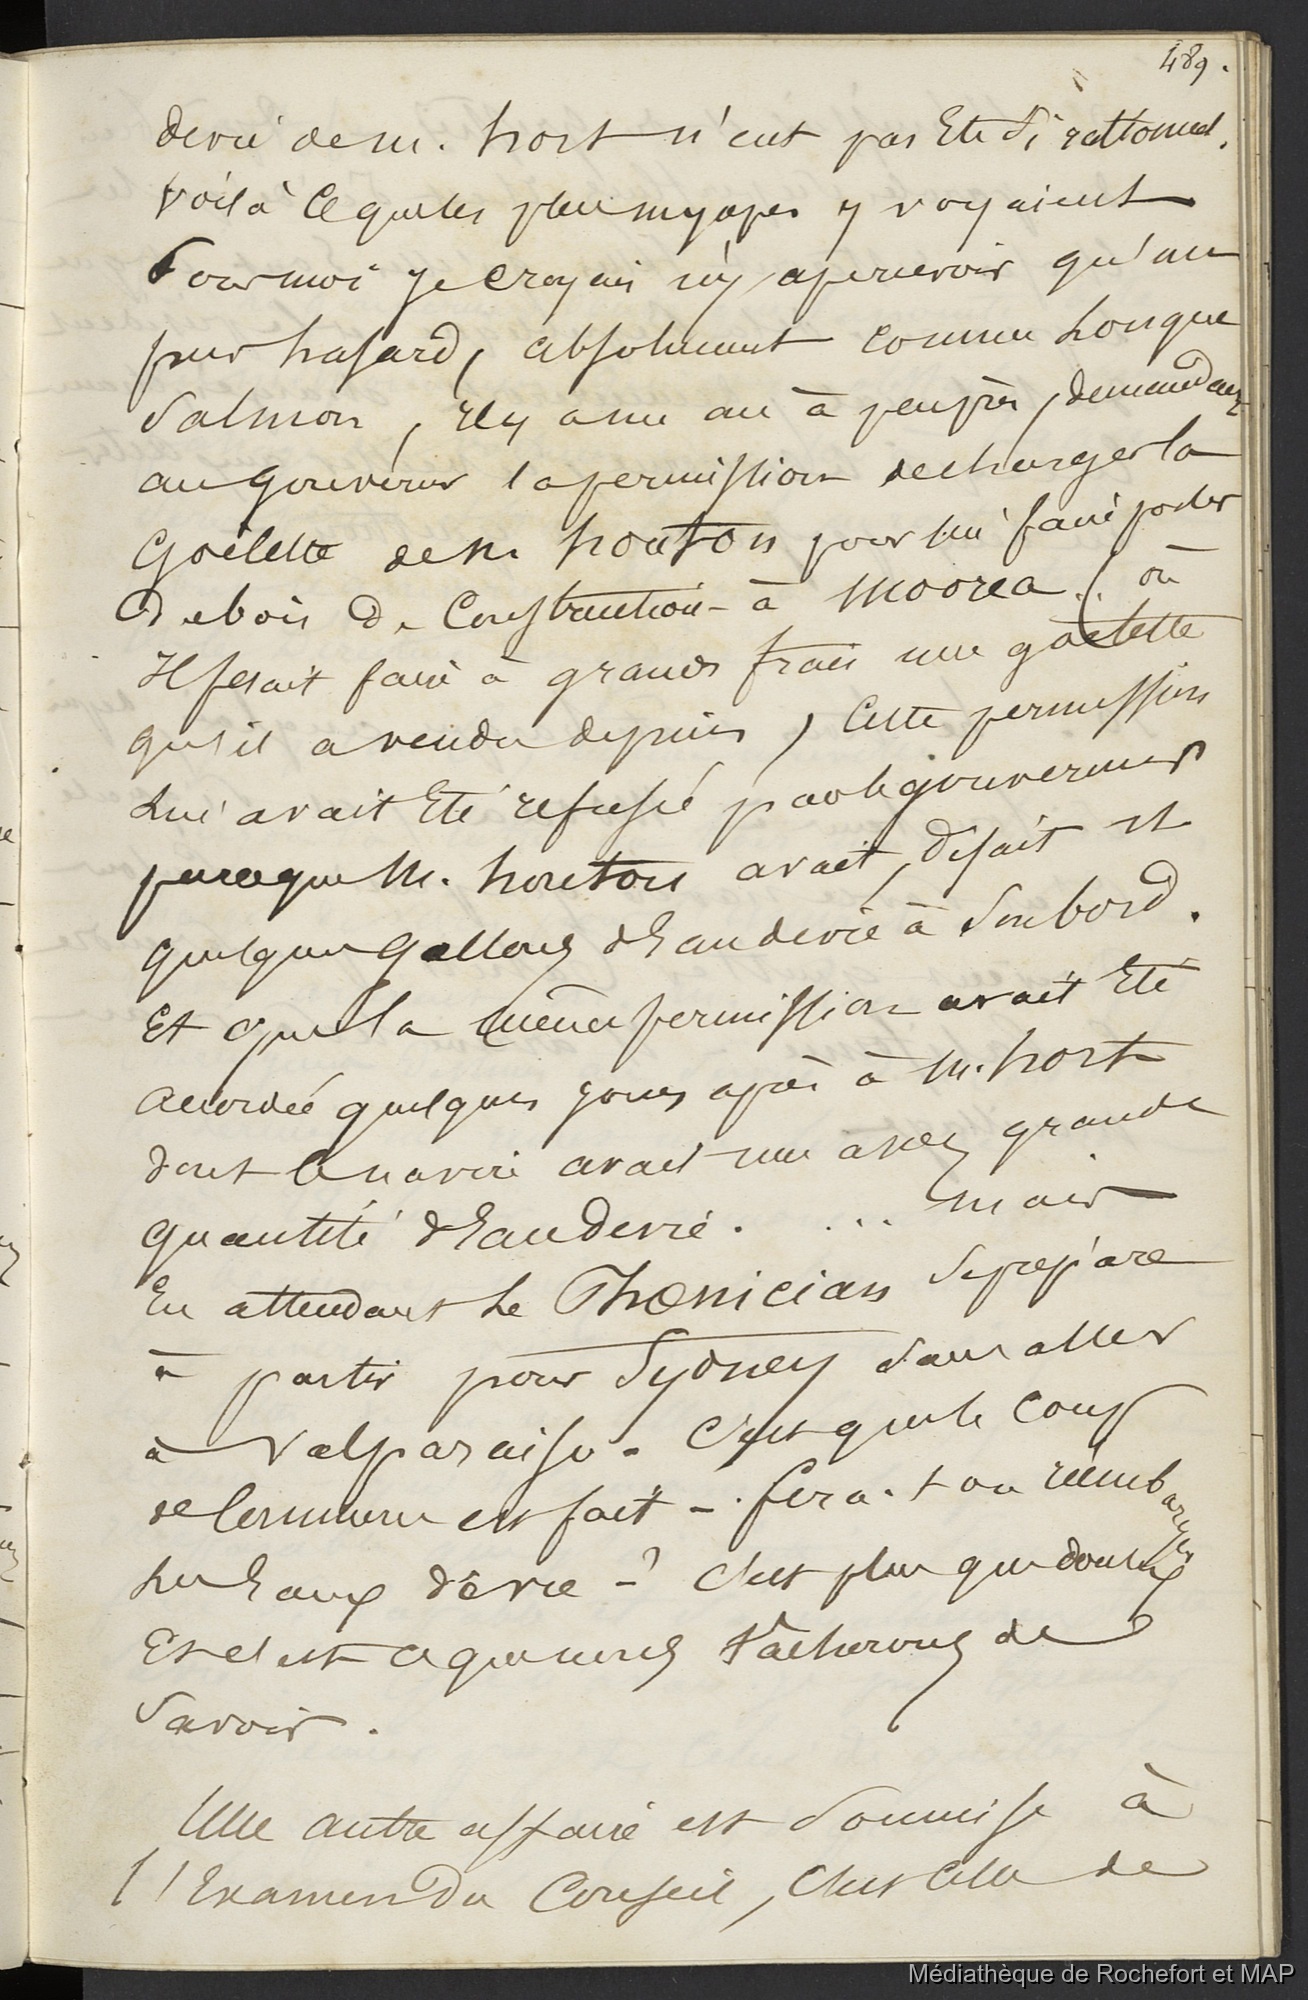 489.
devie de m. hort n'eut pas Eté si rationnel.
Voilà ce que les plus myopes y voyaient
Pour moi je croyais n'y apercevoir qu'un
pur hasard, absolument comme Lorsque
Salmon, il y a un an à peu près, demandant
au gouverneur la permission de charger la
Goëlette de Mr houton pour lui faire porter
de bois de Construction à Moorea (où
Il fesait faire à grands frais une goëlette
qu'il a vendu depuis) Cette permission
Lui avait Eté refusée par le gouverneur
parceque M. houton avait, disait il
quelques gallons d'Eau devie à Son bord.
Et que la même permission avait Eté
accordée quelques jours après à M. hort
dont le navire avait une assez grande
quantité d'Eau devie. ... mais
En attendant Le Phœnician Se prépare
à partir pour Sydney Sans aller
à Valparaiso - C'est que le coup
de commerce est fait -. fera-t on réembarquer
Les Eaux devie -? C'est plus que douteux
Et c'est ce que nous tâcherons de
Savoir.
Une autre affaire est Soumise à
l'Examen du Conseil, C'est Celle de
Médiathèque de Rochefort et MAP